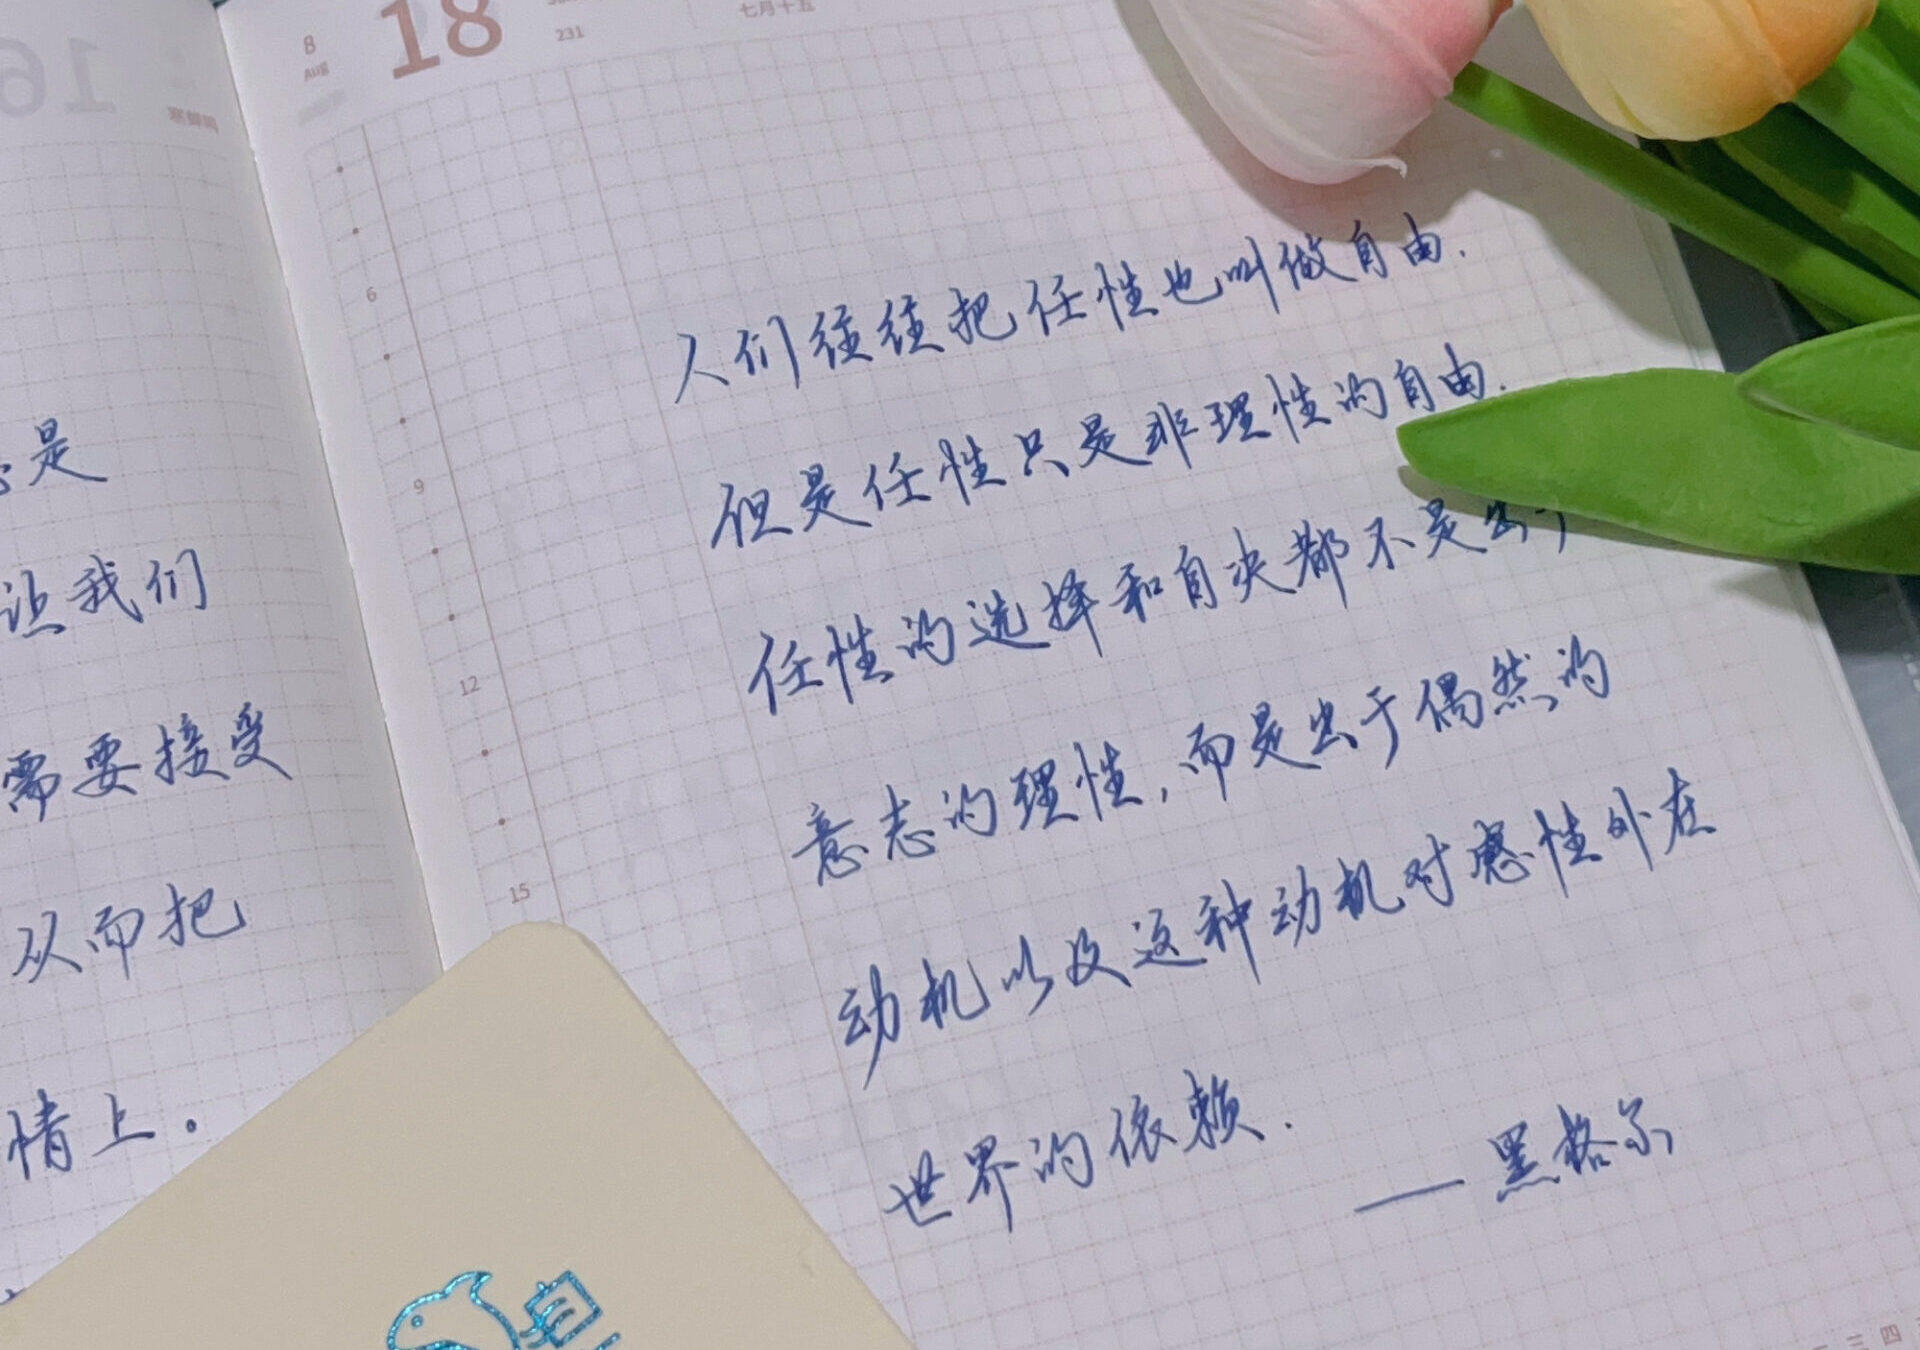 16
8
AUG
18
231
七月十五
是
让我们
需要接受
从而把
情上.
6
9
12
15
人们往往把任性也叫做自由.
但是任性只是非理性的自由.
任性的选择和自决都不是出于
意志的理性,而是出于偶然的
动机以及这种动机对感性外在
世界的依赖.
——黑格尔
三 四